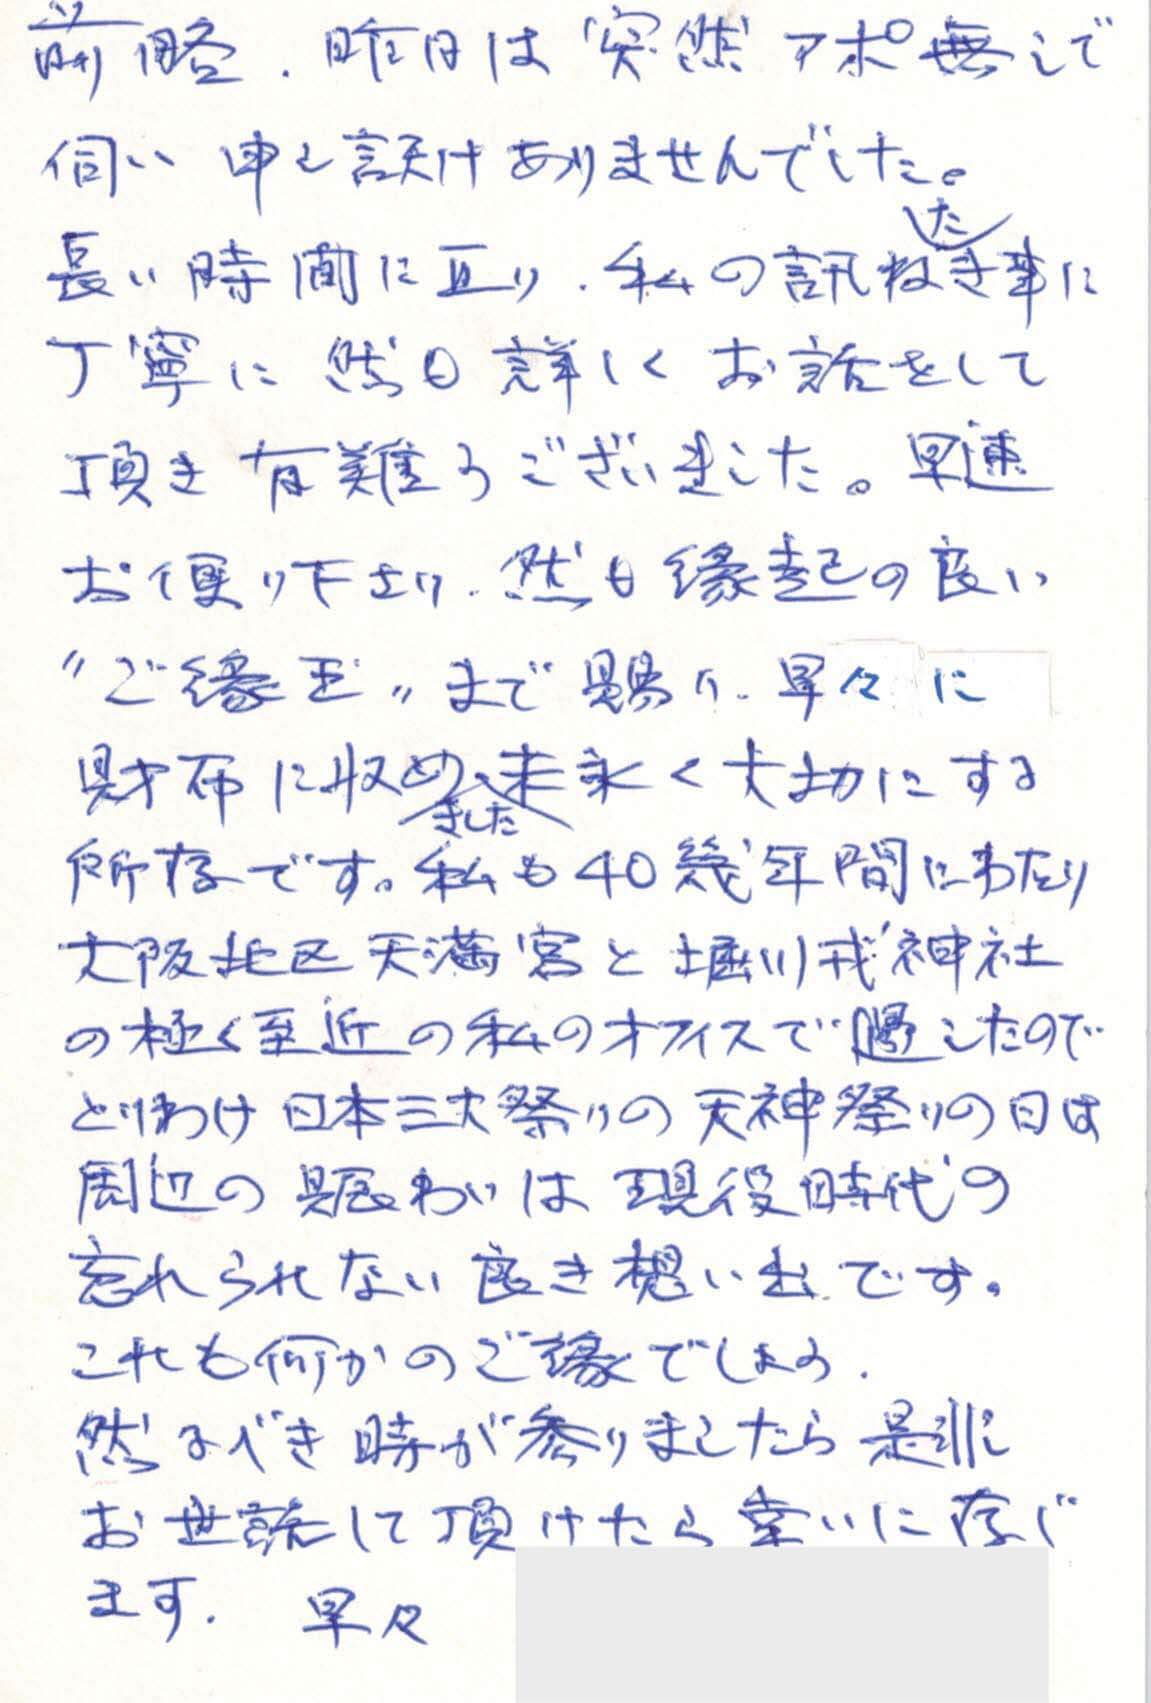 前略、昨日は突然アポ無しで
伺い申し訳けありませんでした。
長い時間に亘り、私の訊ねたき事に
丁寧に然も詳しくお話をして
頂き有難うございました。早速
お便り下さり、然も縁起の良い
"ご縁玉"まで賜り、早々に
財布に収めました、末永く大切にする
所存です。私も40幾年間にわたり
大阪北区天満宮と堀川戎神社
の極く至近の私のオフィスで過したので
とりわけ日本三大祭りの天神祭りの日は
周辺の賑わいは現役時代の
忘れられない良き想い出です。
これも何かのご縁でしょう。
然るべき時が参りましたら是非
お世話して頂けたら幸いに存じ
ます。 早々